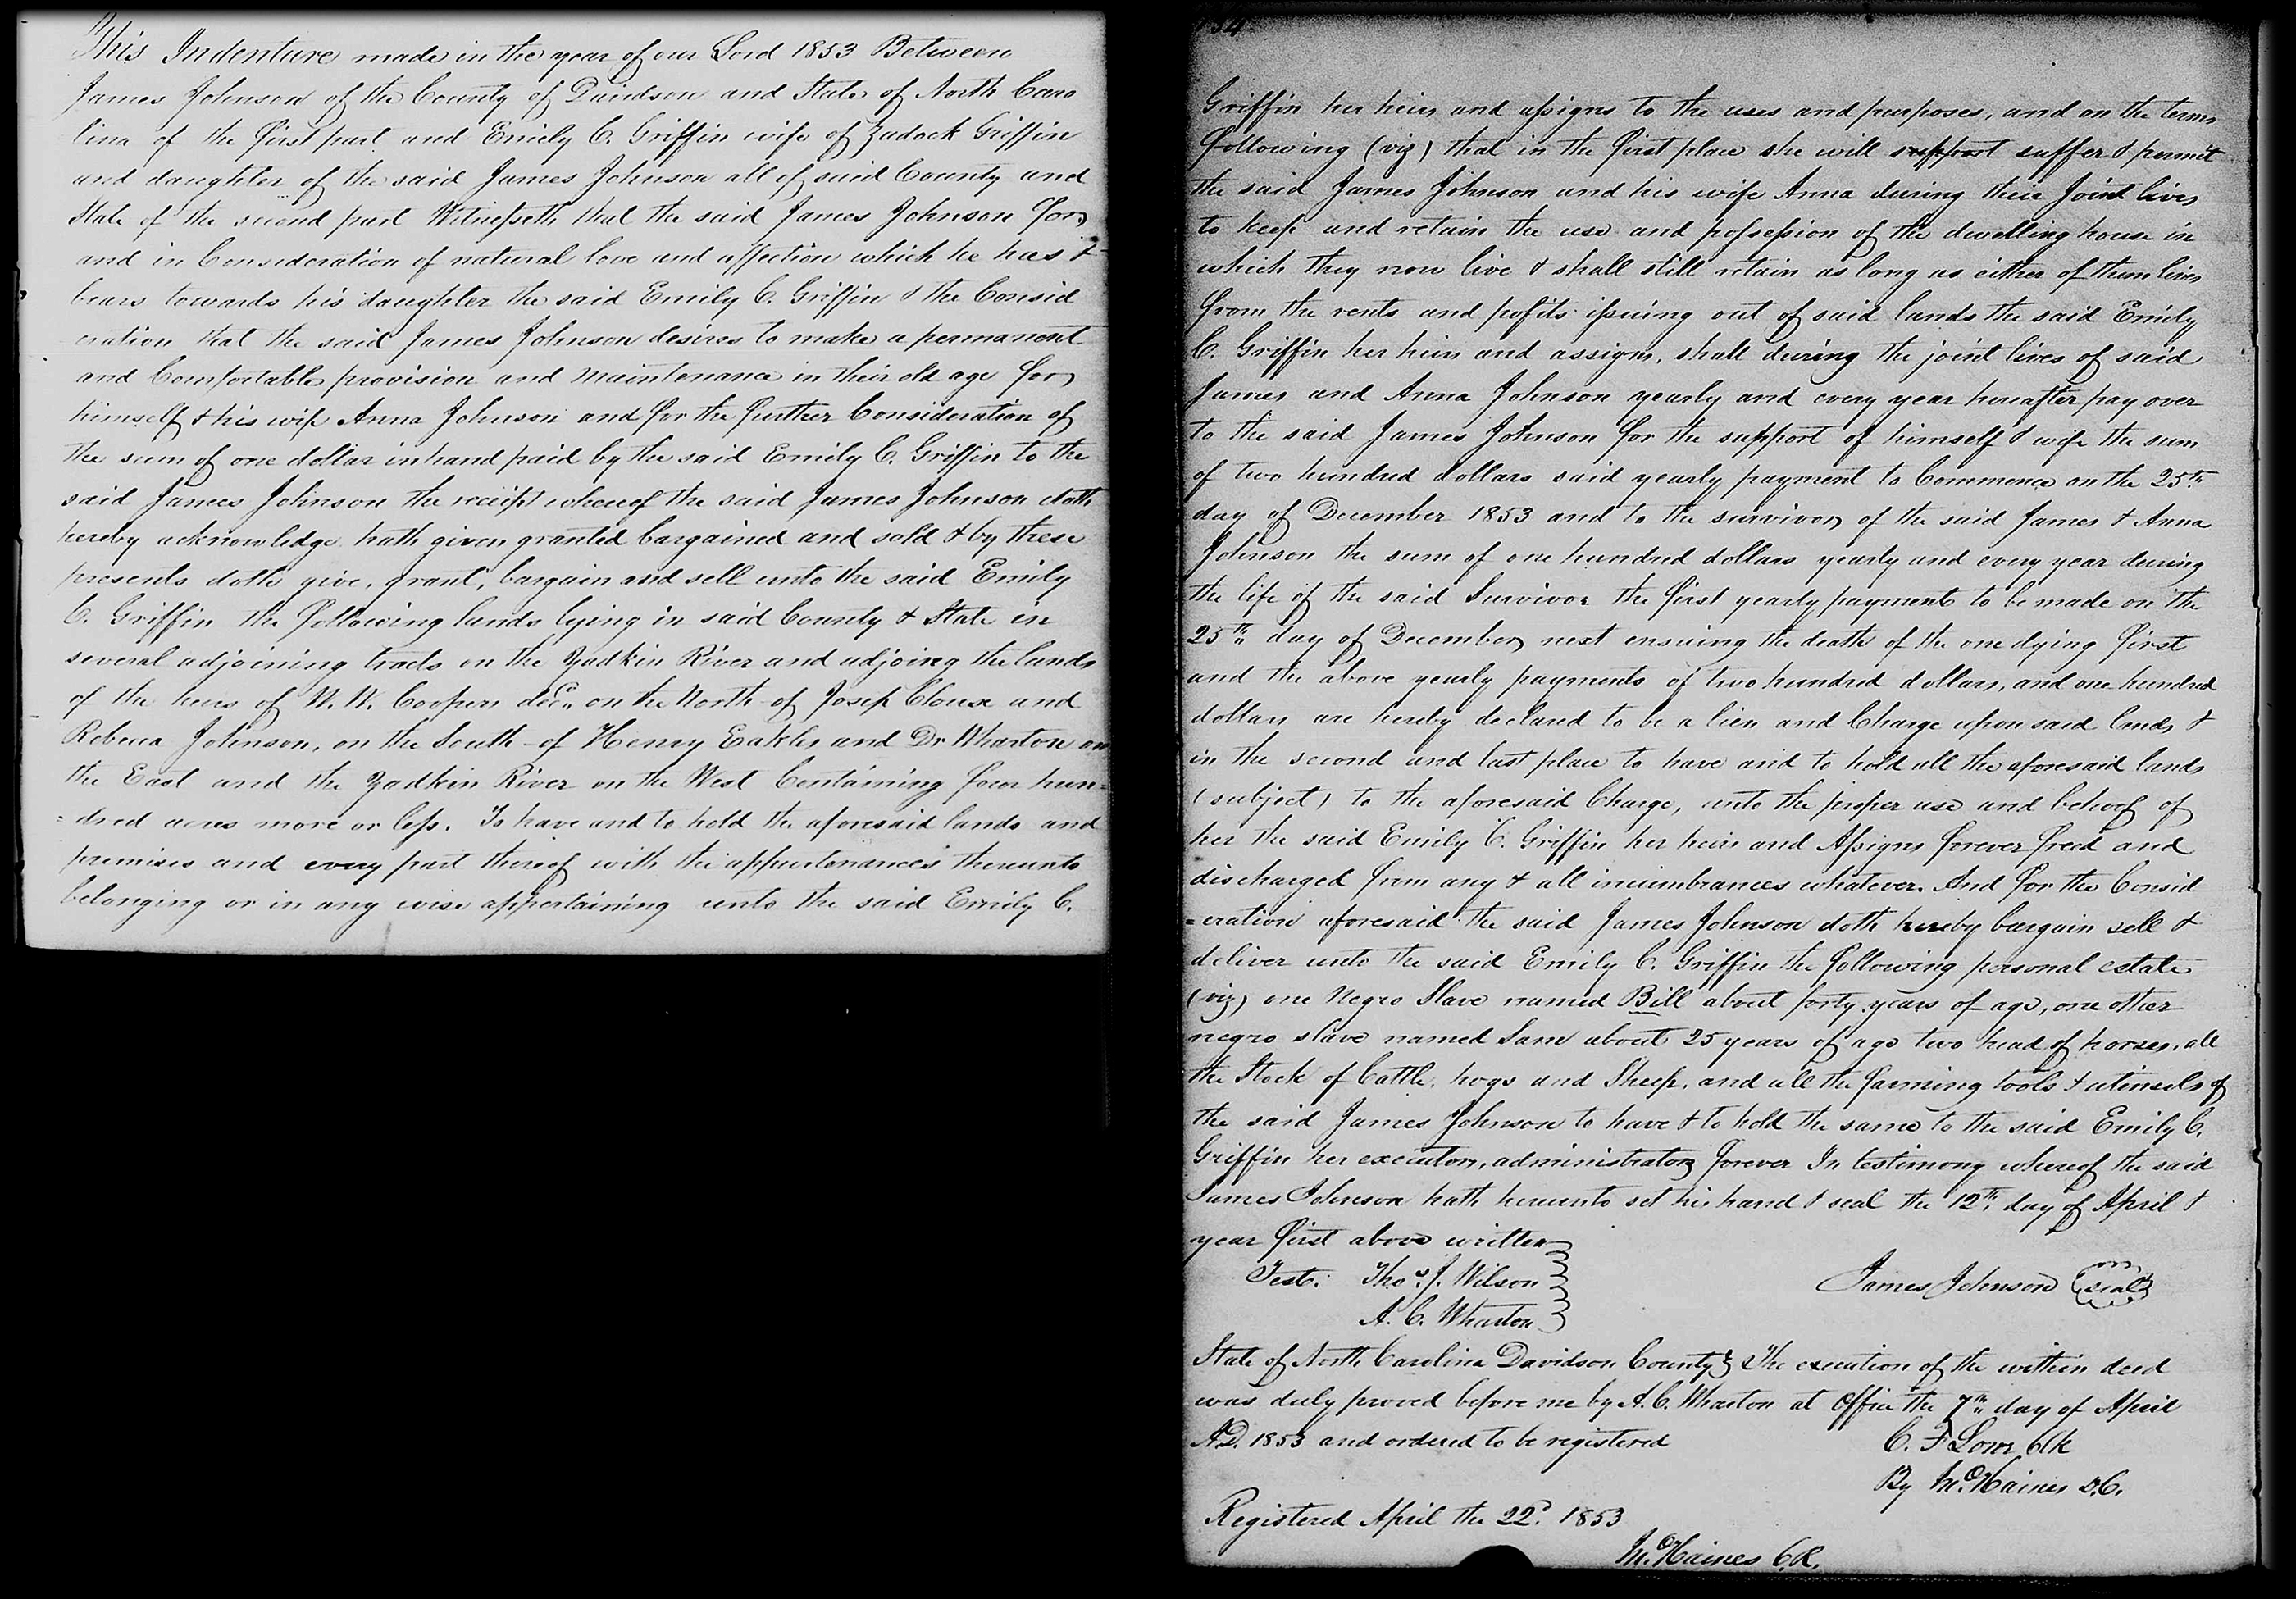 This Indenture made in the year of our Lord 1853 Between
James Johnson of the County of Davidson and State of North Caro
lina of the first part and Emily C. Griffin wife of Zadock Griffin
and daughter of the said James Johnson all of said County and
State of the second part Witnesseth that the said James Johnson for
and in Consideration of natural love and affection which he has &
bears towards his daughter the said Emily C. Griffin & the Consid
eration that the said James Johnson desires to make a permanent
and Comfortable provision and maintenance in their old age for
himself & his wife Anna Johnson and for the further Consideration of
the sum of one dollar in hand paid by the said Emily C. Griffin to the
said James Johnson the receipt whereof the said James Johnson doth
hereby acknowledge hath given granted bargained and sold & by these
presents doth give, grant, bargain and sell unto the said Emily
C. Griffin the following lands lying in said County & State in
several adjoining tracts on the Yadkin River and adjoing the lands
of the heirs of W. W. Coopers decd. on the North of Josep Clouse and
Rebecca Johnson, on the South of Henry Eakles and Dr Wharton on
the East and the Yadkin River on the West Containing four hun=
=dred acres more or less. To have and to hold the aforesaid lands and
premises and every part thereof with the appurtenances thereunto
belonging or in any wise appertaining unto the said Emily C.
34
Griffin her heirs and assigns to the uses and purposes, and on the terms
following (viz) that in the first place she will support suffer & permit
the said James Johnson and his wife Anna during their Joint lives
to keep and retain the use and possession of the dwelling house in
which they now live & shall still retain as long as either of them lives
from the rents and pofits issuing out of said lands the said Emily
C. Griffin her heirs and assigns, shall during the joint lives of said
James and Anna Johnson yearly and every year hereafter pay over
to the said James Johnson for the support of himself & wife the sum
of two hundred dollars said yearly payment to Commence on the 25th
day of December 1853 and to the survivor of the said James & Anna
Johnson the sum of one hundred dollars yearly and every year during
the life of the said Survivor the first yearly payment to be made on the
25th day of December next ensuing the death of the one dying first
and the above yearly payments of two hundred dollars, and one hundred
dollars are hereby declared to be a lien and Charge upon said lands &
in the second and last place to have and to hold all the aforesaid lands
(subject) to the aforesaid Charge, unto the proper use and behoof of
her the said Emily C. Griffin her heirs and Assigns forever freed and
discharged from any & all incumbrances whatever. And for the Consid
=eration aforesaid the said James Johnson doth hereby bargain sell &
deliver unto the said Emily C. Griffin the following personal estate
(viz) one Negro Slave named Bill about forty years of age, one other
negro slave named Sam about 25 years of age two head of horses, all
the Stock of Cattle, hogs and Sheep, and all the farming tools & utensils of
the said James Johnson to have & to hold the same to the said Emily C.
Griffin her executors, administrators forever In testimony whereof the said
James Johnson hath hereunto set his hand & seal the 12th day of April &
year first above written
Test. Thos. J. Wilson
James Johnson (seal)
A. C. Wharton
State of North Carolina Davidson County } The execution of the within deed
was duly proved before me by A. C. Wharton at Office the 7th day of April
A.D. 1853 and ordered to be registered
C. F Low Clk
By M. Haines D.C.
Registered April the 22d. 1853
M. Haines C.R.